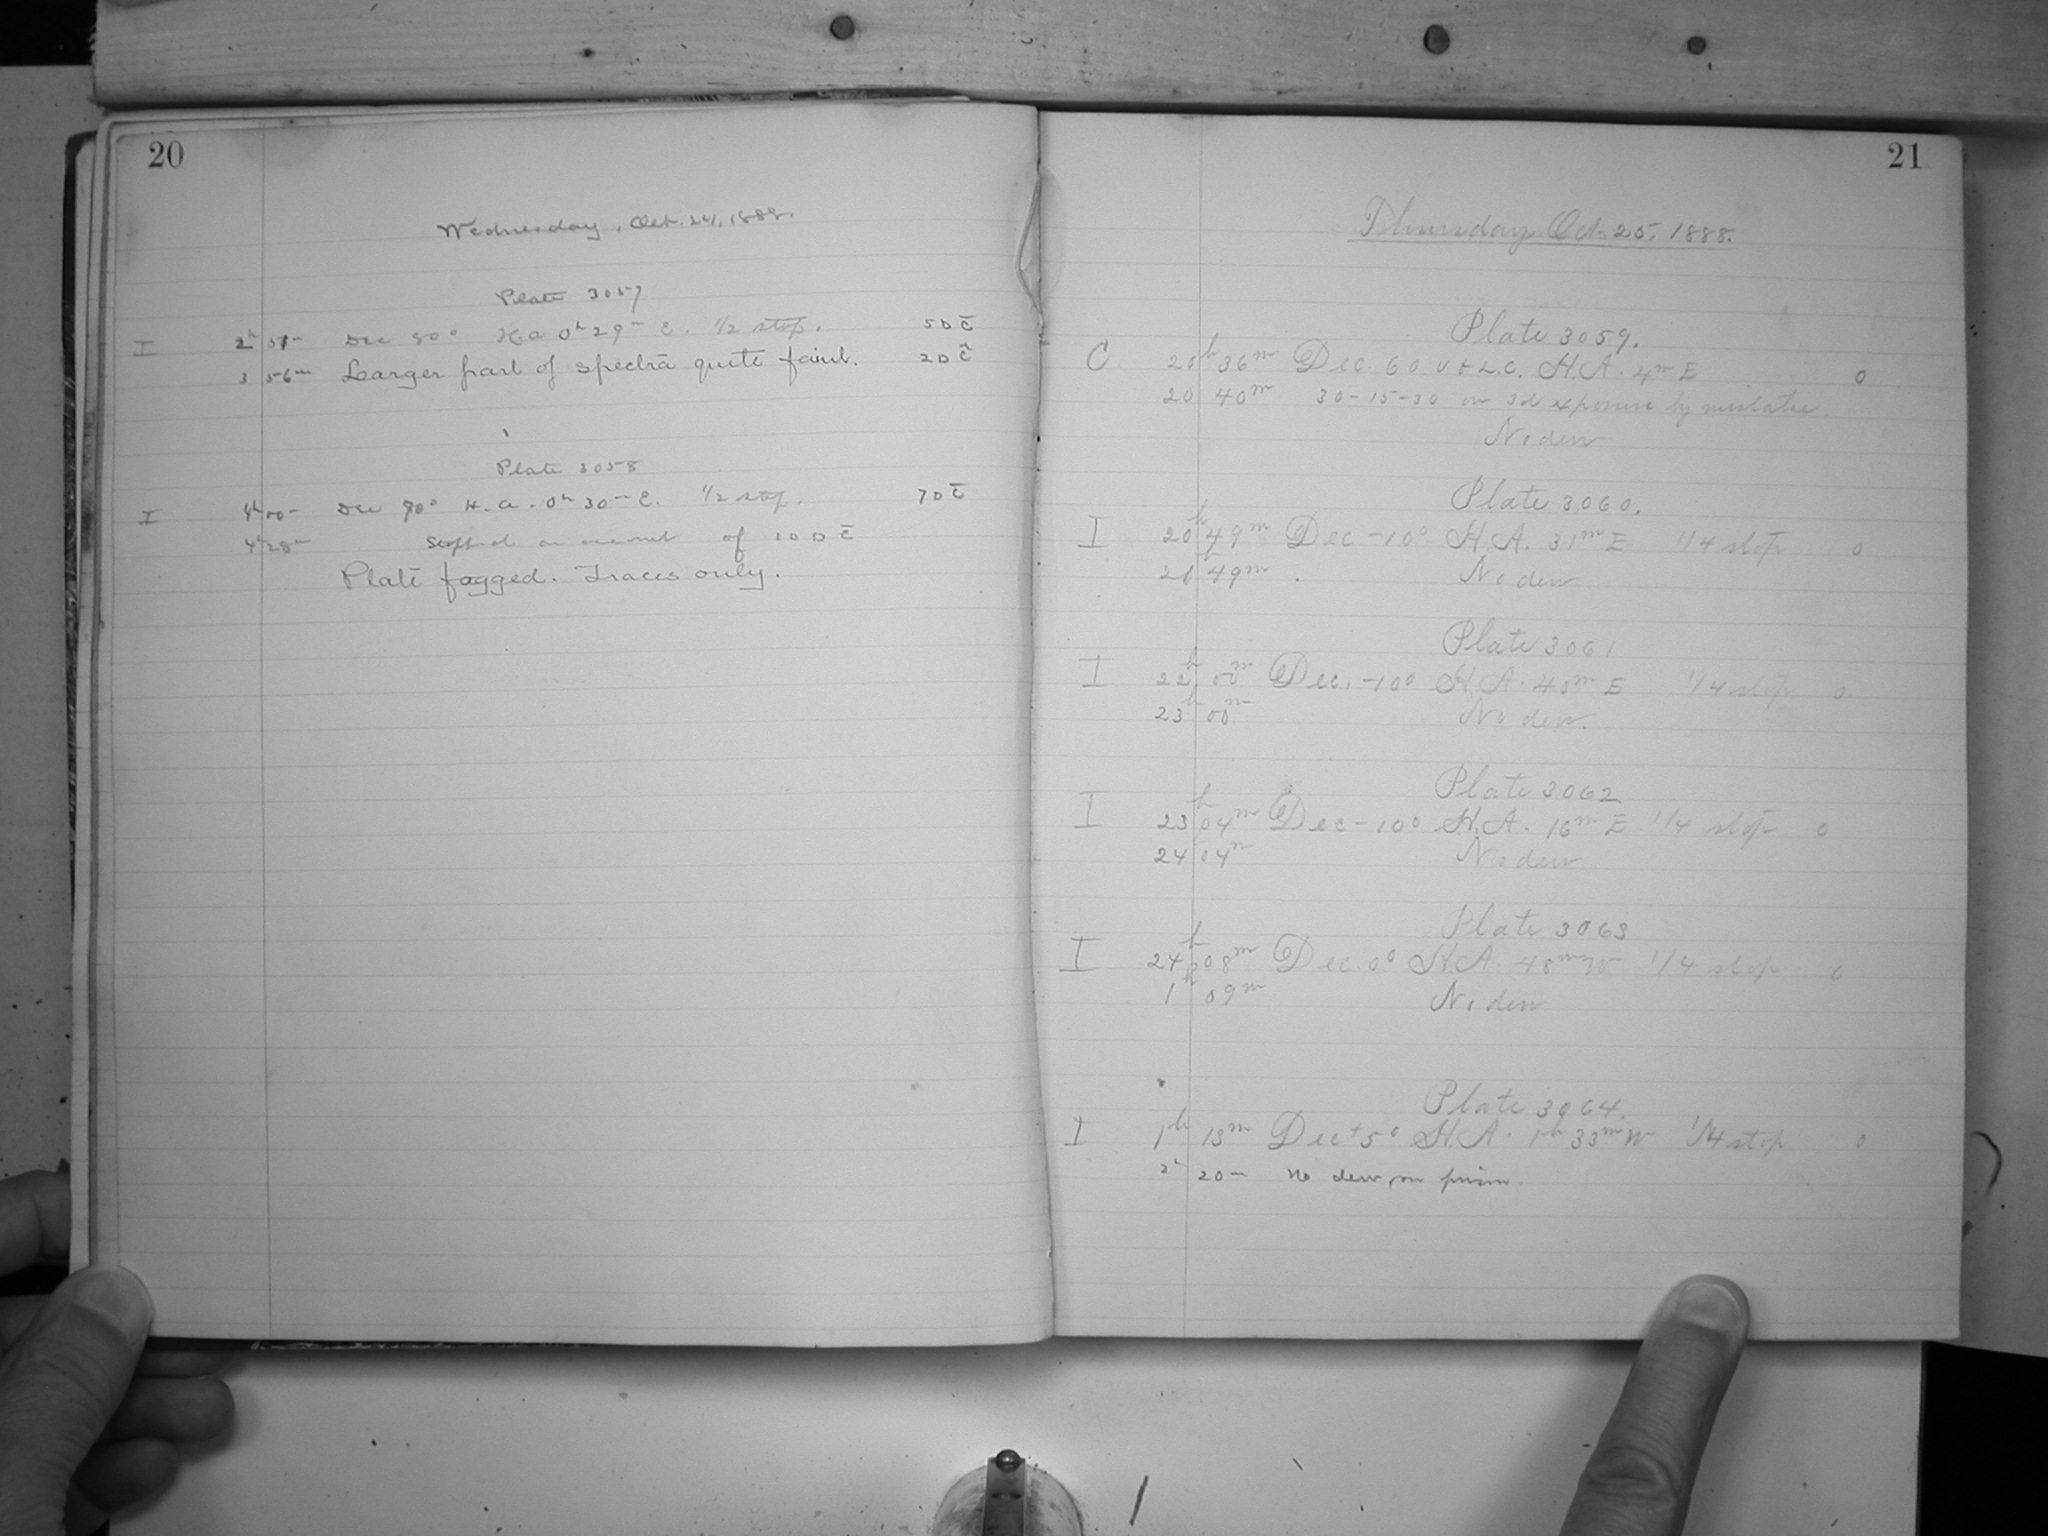 20
Wednesday, Oct. 24, 1888.
Plate 3057
I 2h 57m Dec 80° H a 0h 29m E. 1/2 stop. 5 D C̄
3 56m Larger part of spectra quite faint. 2 D C̄
Plate 3058
I 4h 00m Dec 90° H. a. 0h 30m E. 1/2 stop. 7 D C̄
4h 28m Stopped on account of 10 D C̄
Plate fogged. Traces only.
21
Thursday Oct. 25, 1888.
Plate 3059.
C 20h 36m Dec. 60 U & L.C. H.A. 4m E 0
20 40m 30-15-30 on 3d exposure by mistake
No dew
Plate 3060.
I 20h 49m Dec -10° H.A. 31m E 1/4 stop 0
21 49m. No dew
Plate 3061
I 22h 00m Dec. -10° H.A. 40m E 1/4 stop 0
23h 00m No dew.
Plate 3062
I 23h 04m Dec -10° H.A. 16m E 1/4 stop 0
24 04m No dew
Plate 3063
I 24h 08m Dec. 0° H.A. 48m W 1/4 stop 0
1h 09m No dew
Plate 3064.
I 1h 13m Dec +5° H.A. 1h 33m W 1/4 stop 0
2h 20m No dew on prism.